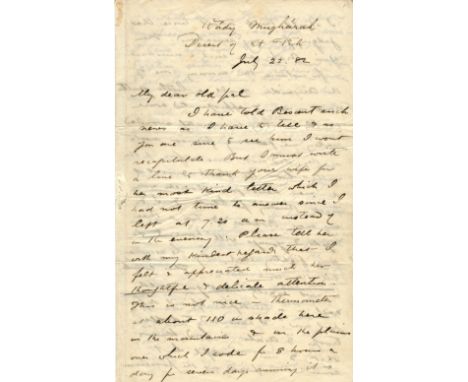 Wady Mugharah
Desert of
July 22. 82
My dear old pal
I have told Besant such
news as I have to tell & as
you are sure to see him I wont
recapitulate. But I must write
a line to thank your wife for
her most kind letter which I
had not time to answer since I
left at 7 20 a m instead of
in the evening. Please tell her
with my kindest regards that I
felt & appreciated much her
thoughtful & delicate attention
This is not nice - thermometer
about 110 in shade here
in the mountains & in the plains
over which I rode for 8 hours a
day for seven days running it is